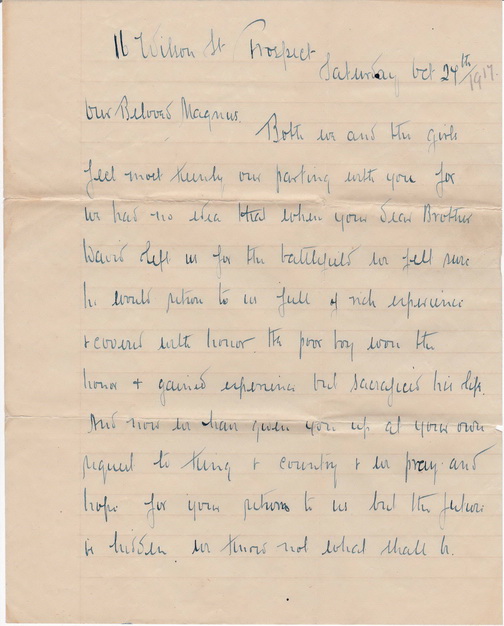 16 Wilson St Prospect
Saturday Oct 27th/1917.
Our Beloved Magnus.
Both we and the girls
feel most keenly our parting with you for
we had no idea that when your dear Brother
David left us for the battlefield we felt sure
he would return to us full of rich experience
& covered with honor the poor boy won the
honor & gained experience but sacraficed his life.
And now we have given you up at your own
request to King & country & we pray and
hope for your return to us but the future
is hidden we know not what shall be.